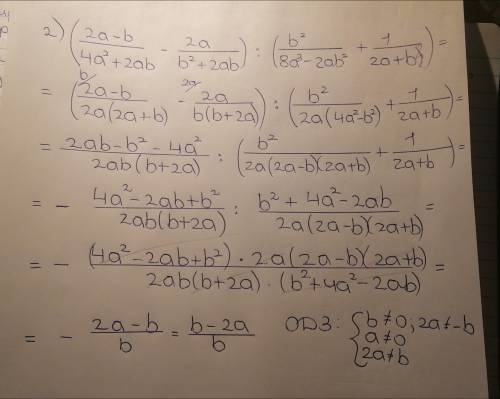 2) ( (2a-b)/(4a²+2ab) - 2a/(b²+2ab) ) : ( b²/(8a³-2ab²) + 1/(2a+b) ) =
= ( b/ (2a-b)/(2a(2a+b)) - 2a/ 2a/(b(b+2a)) ) : ( b²/(2a(4a²-b²)) + 1/(2a+b) ) =
= (2ab-b²-4a²)/(2ab(b+2a)) : ( b²/(2a(2a-b)(2a+b)) + 1/(2a+b) ) =
= - (4a²-2ab+b²)/(2ab(b+2a)) : (b²+4a²-2ab)/(2a(2a-b)(2a+b)) =
= - ((4a²-2ab+b²)·2a(2a-b)(2a+b))/(2ab(b+2a)·(b²+4a²-2ab)) =
= - (2a-b)/b = (b-2a)/b ОДЗ: { b≠0; 2a≠-b
a≠0
2a≠b